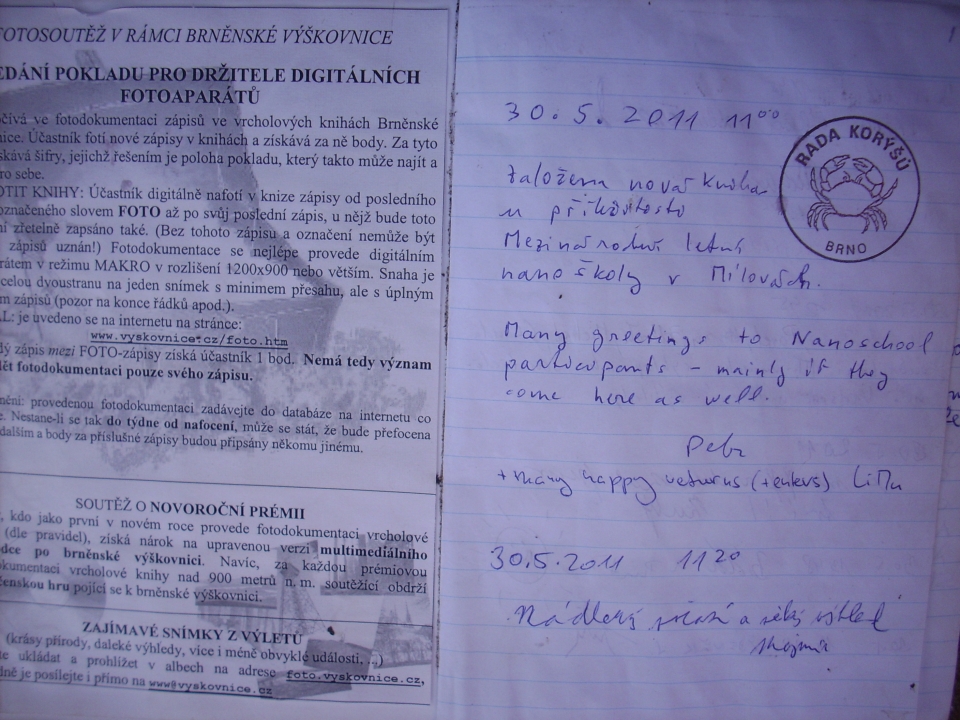 FOTOSOUTĚŽ V RÁMCI BRNĚNSKÉ VÝŠKOVNICE
EDÁNÍ POKLADU PRO DRŽITELE DIGITÁLNÍCH
FOTOAPARÁTŮ
čívá ve fotodokumentaci zápisů ve vrcholových knihách Brněnské
nice. Účastník fotí nové zápisy v knihách a získává za ně body. Za tyto
skává šifry, jejichž řešením je poloha pokladu, který takto může najít a
ro sebe.
OTIT KNIHY: Účastník digitálně nafotí v knize zápisy od posledního
označeného slovem FOTO až po svůj poslední zápis, u nějž bude toto
ní zřetelně zapsáno také. (Bez tohoto zápisu a označení nemůže být
zápisů uznán!) Fotodokumentace se nejlépe provede digitálním
rátem v režimu MAKRO v rozlišení 1200x900 nebo větším. Snaha je
celou dvoustranu na jeden snímek s minimem přesahu, ale s úplným
m zápisů (pozor na konce řádků apod.).
L: je uvedeno se na internetu na stránce:
www.vyskovnice.cz/foto.htm
dý zápis mezi FOTO-zápisy získá účastník 1 bod. Nemá tedy význam
dět fotodokumentaci pouze svého zápisu.
nění: provedenou fotodokumentaci zadávejte do databáze na internetu co
e. Nestane-li se tak do týdne od nafocení, může se stát, že bude přefocena
dalším a body za příslušné zápisy budou připsány někomu jinému.
SOUTĚŽ O NOVOROČNÍ PRÉMII
, kdo jako první v novém roce provede fotodokumentaci vrcholové
(dle pravidel), získá nárok na upravenou verzi multimediálního
dce po brněnské výškovnici. Navíc, za každou prémiovou
okumentaci vrcholové knihy nad 900 metrů n. m. soutěžící obdrží
enskou hru pojící se k brněnské výškovnici.
ZAJÍMAVÉ SNÍMKY Z VÝLETŮ
(krásy přírody, daleké výhledy, více i méně obvyklé události, ...)
te ukládat a prohlížet v albech na adrese foto.vyskovnice.cz,
dně je posílejte i přímo na www@vyskovnice.cz
30. 5. 2011 11⁰⁰
RADA KORÝŠŮ
BRNO
založena nová kniha
u příležitosti
Mezinárodní letní
nanoškoly v Milovách.
Many greetings to Nanoschool
participants – mainly if they
come here as well.
Petr
+ many happy returns
30.5.2011 11²⁰
Nádherný a výhled